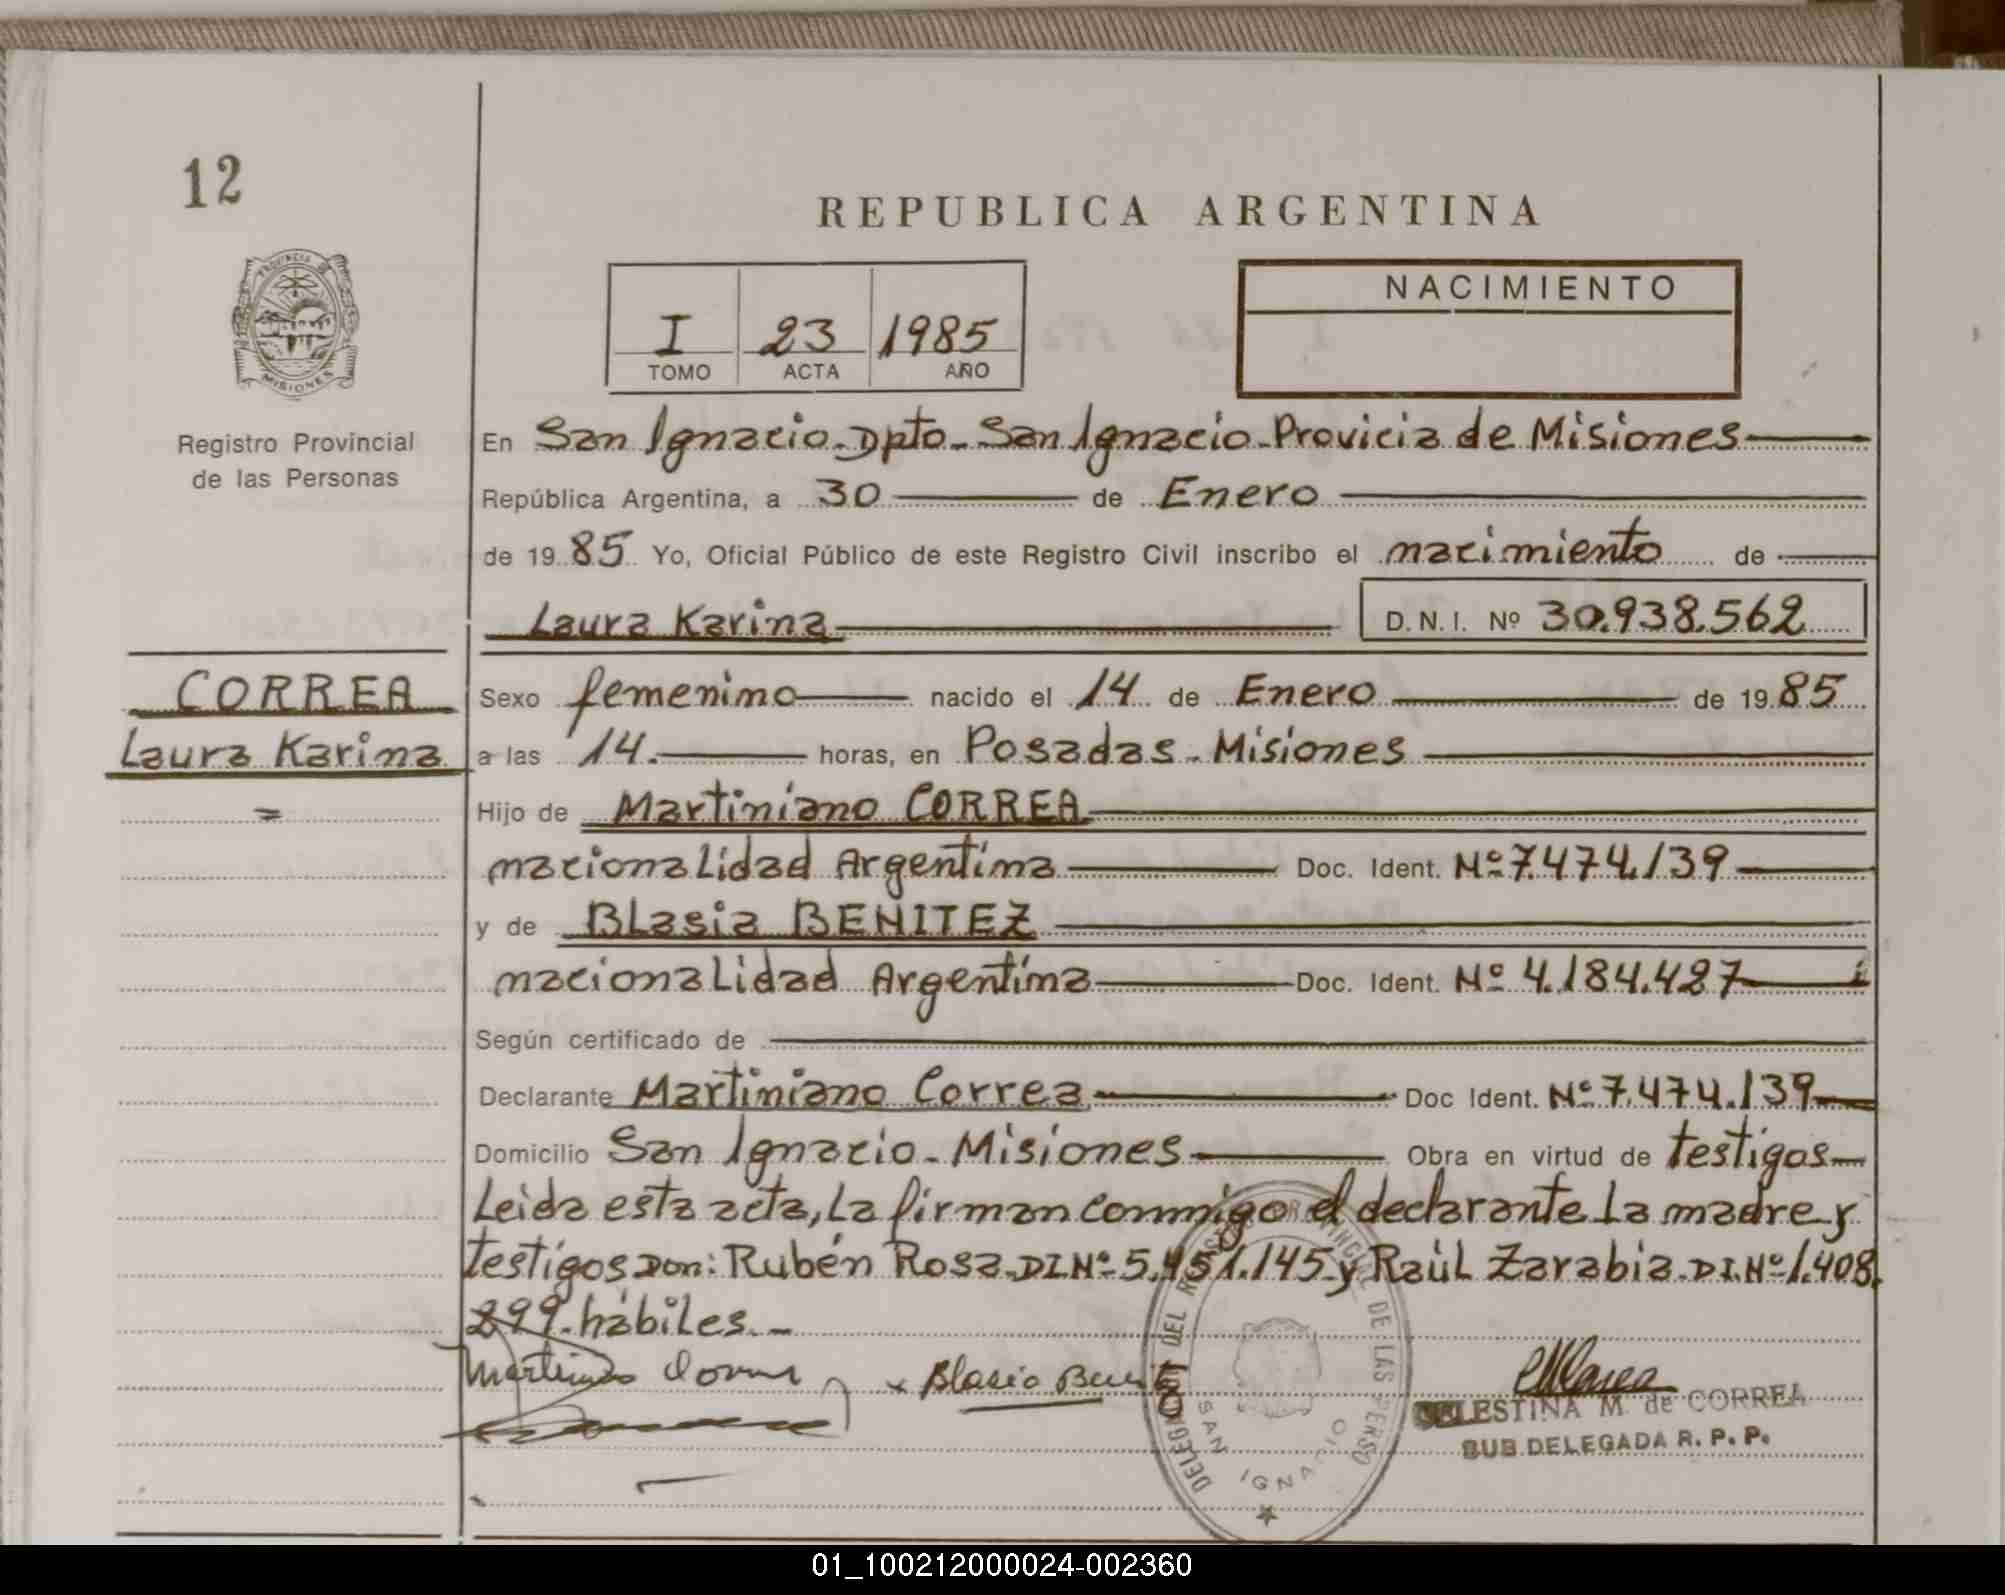 12
REPUBLICA ARGENTINA
PROVINCIA DE
MISIONES
Registro Provincial
de las Personas
I 23 1985
TOMO ACTA AÑO
NACIMIENTO
En San Ignacio-Dpto-San Ignacio-Provicia de Misiones
República Argentina, a 30 de Enero
de 1985 Yo, Oficial Público de este Registro Civil inscribo el nacimiento de
Laura Karina D.N.I. Nº 30.938.562
CORREA
Laura Karina
=
Sexo femenino nacido el 14 de Enero de 1985
a las 14. horas, en Posadas - Misiones
Hijo de Martiniano CORREA
nacionalidad Argentina Doc. Ident. Nº 7.474.139
y de Blasia BENITEZ
nacionalidad Argentina Doc. Ident. Nº 4.184.427
Según certificado de
Declarante Martiniano Correa Doc Ident. Nº 7.474.139
Domicilio San Ignacio - Misiones Obra en virtud de testigos
Leida esta acta, la firman conmigo el declarante la madre y
testigos Don: Rubén Rosa-DI.Nº 5.451.145 y Raúl Zarabia-D.I.Nº 1.408.
299-hábiles.-
Blasia
CELESTINA M. de CORREA
SUB DELEGADA R. P. P.
SAN IGNACIO
01_100212000024-002360